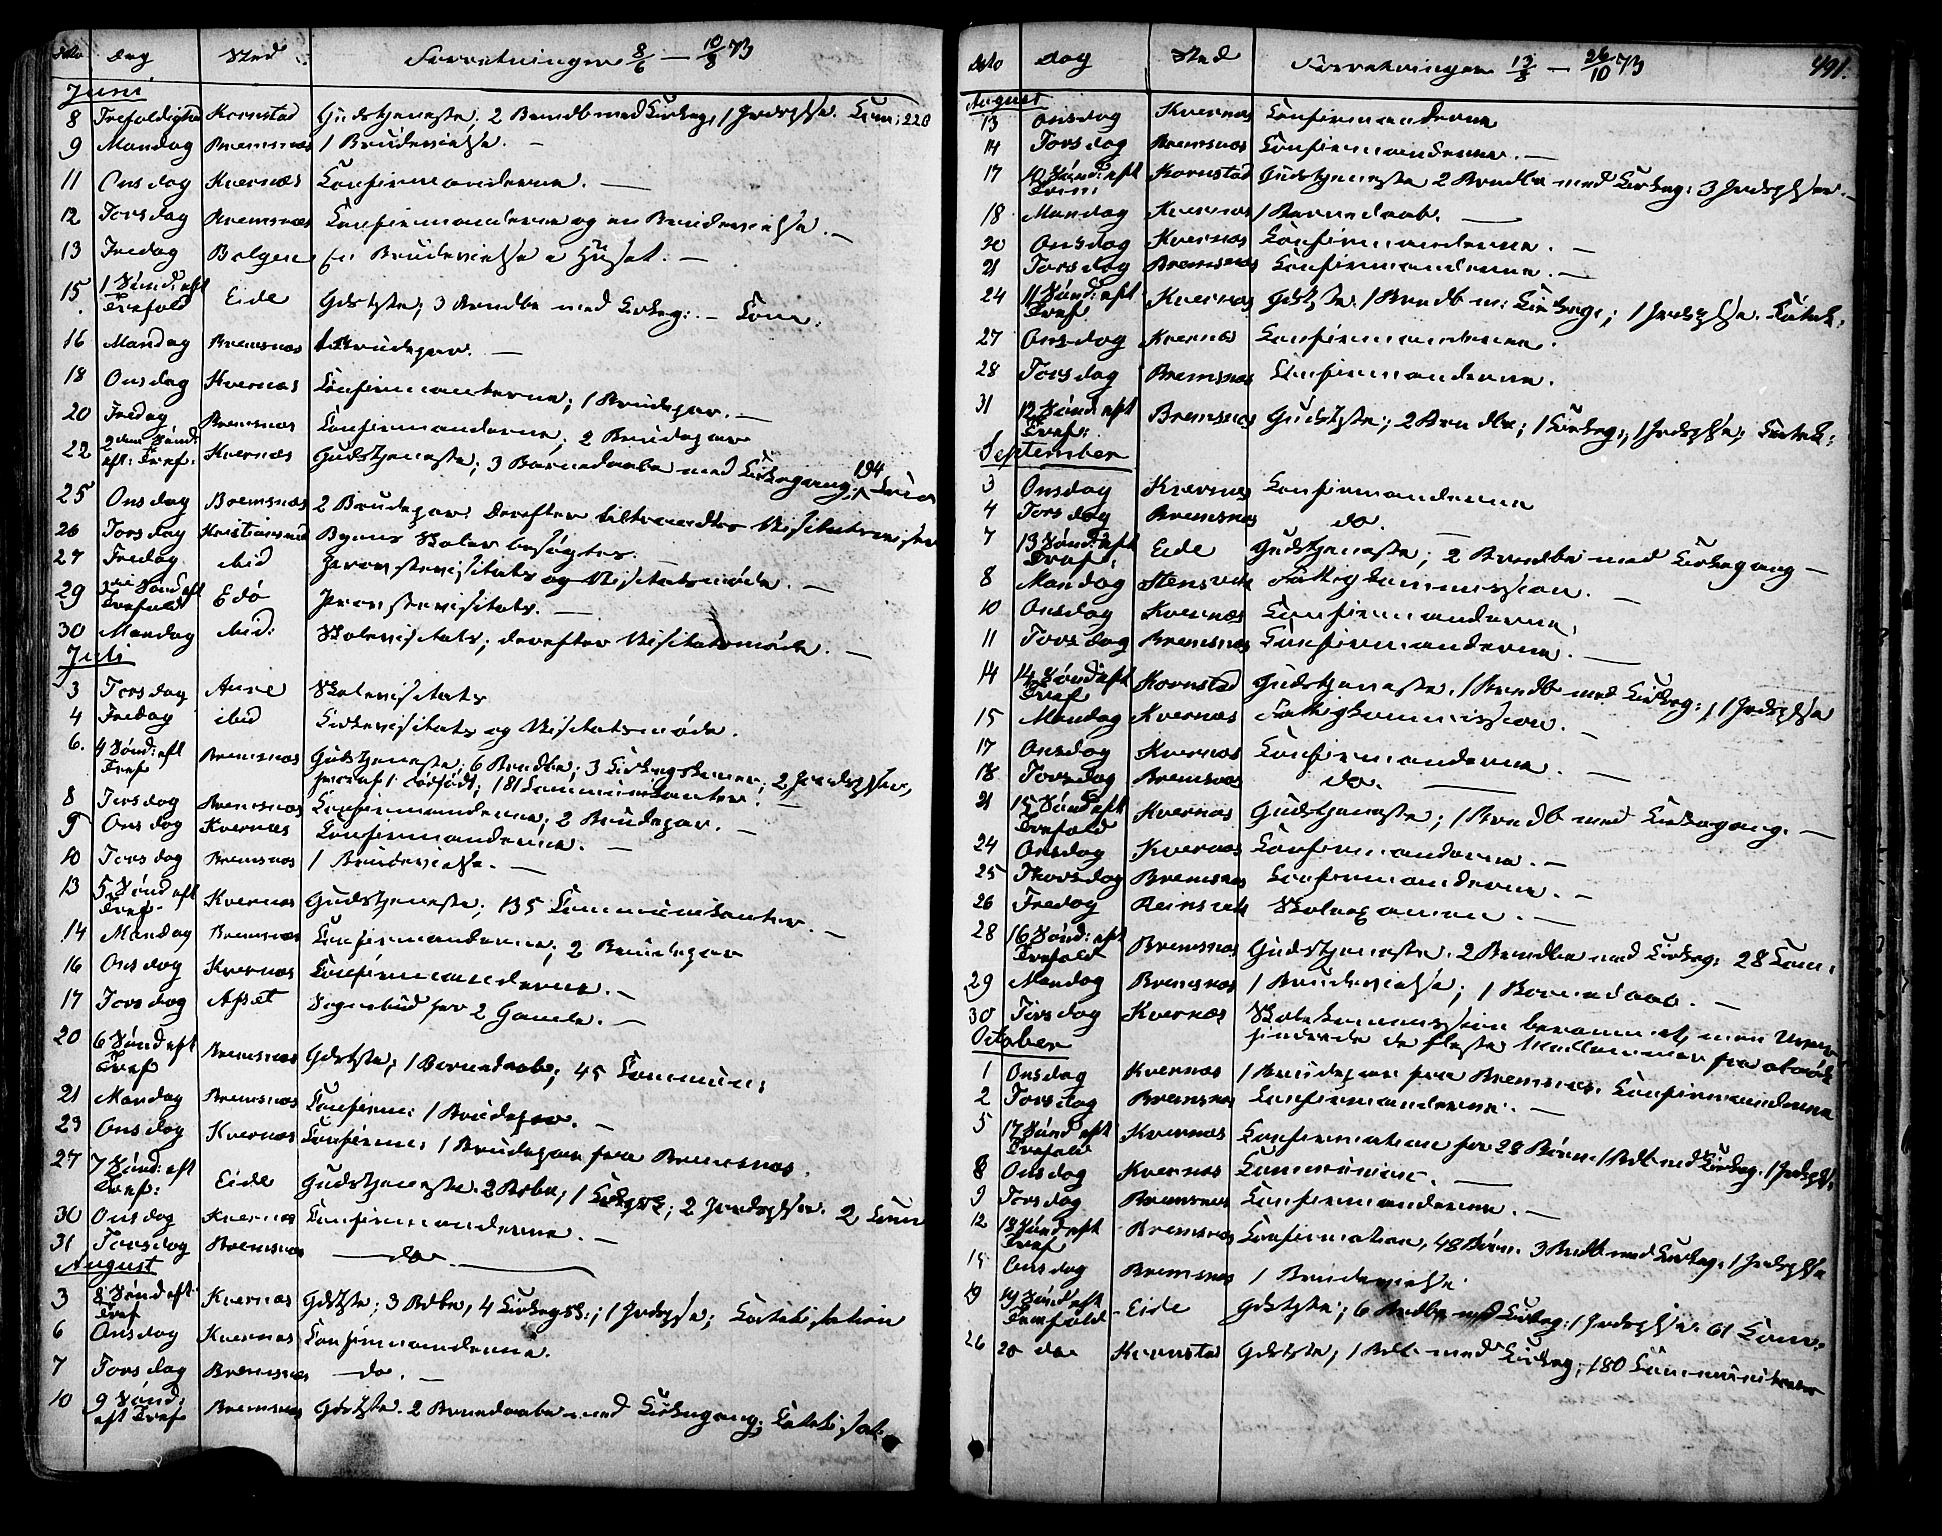 Dato dag Sted Forretninger 8/6 — 10/8 73
Juni
8 Trefoldighed Kornstad Gudstjeneste. 2 Barndb med Kirkeg, 1 Jordsplse. Kom: 220
9 Mandag Bremsnæs 1 Brudevielse. —
11 Onsdag Kvernæs Confirmanderne. —
12 Torsdag Bremsnæs Confirmanderne og en Brudevielse. —
13 Fredag Bolgen En Brudevielse i Huset. —
15 1 Sønd: eft Trefold Eide Gdstjste, 3 Barndbe med Kirkeg: — Com.
16 Mandag Bremsnæs 1 Brudepar. —
18 Onsdag Kvernæs Confirmanterne; 1 Brudepar. —
20 Fredag Bremsnæs Confirmanderne; 2 Brudepar
22 2den Sønd: eft: Tref: Kvernæs Gudstjeneste; 3 Barnedaabe med Kirkegang; 194 Com
25 Onsdag Bremsnæs 2 Brudepar. Derefter tiltraadtes Visitatsreise
26 Torsdag Kristiansund Byens Skoler besøgtes.
27 Fredag ibid Provstevisitats og Visitatsmøde. —
29 3die Sønd eft Trefold Edø Provstevisitats. —
30 Mandag ibid: Skolevisitats; derefter Visitatsmøde. —
Juli
3 Torsdag Aure Skolevisitats
4 Fredag ibid Kirkevisitats og Visitatsmøde.
6. 4 Sønd: eft Tref Bremsnæs Gudstjeneste; 6 Barndbe; 3 Kirkegskoner; 2 Jordsplser,
hvoraf 1 dødfødt; 181 Communicanter. —
8 Tirsdag Bremsnæs Confirmanderne; 2 Brudepar. —
9 Onsdag Kvernæs Confirmanderne. —
10 Torsdag Bremsnæs 1 Brudevielse. —
13 5 Sønd eft Tref. Kvernæs Gudstjeneste; 135 Communicanter. —
14 Mandag Bremsnæs Confirmanderne; 2 Brudepar
16 Onsdag Kvernæs Confirmanderne. —
17 Torsdag Sognebud for 2 Gamle. —
20 6 Sønd eft Tref Bremsnæs Gdstjste; 1 Barnedaab; 45 Commun:
21 Mandag Bremsnæs Confirm: 1 Brudepar. —
23 Onsdag Kvernæs Confirm: 1 Brudepar fra Bremsnæs.
27 7 Sønd: eft Tref: Eide Gudstjeneste. 2 Bdbe; 1 2 Jordsplser. 2 Com
30 Onsdag Kvernæs Confirmanderne. —
31 Torsdag Bremsnæs — do. —
August
3 8 Sønd eft Tref Kvernæs Gdstjste; 3 Bdbe, 4 Kirkegsk:; 1 Jordsplse; Katekisation
6 Onsdag Kvernæs Confirmanderne.
7 Torsdag Bremsnæs — do. —
10 9 Sønd, eft Tref Bremsnæs Gdstjste. 2 Barnedaabe med Kirkegang; Katekisat.
Dato dag Sted Forretninger 13/8 — 26/10 73 491.
August
13 Onsdag Kvernæs Confirmanderne
14 Torsdag Bremsnæs Confirmanderne. —
17 10 Sønd: eft Trin: Kornstad Gudstjeneste 2 Barndbe med Kirkeg: 3 Jordsplser. —
18 Mandag Kvernæs 1 Barnedaab. —
20 Onsdag Kvernæs Confirmanderne. —
21 Torsdag Bremsnæs Confirmanderne. —
24 11 Sønd: eft Tref Kvernæs Gdstjste. 1 Barndb m: Kirkeg:; 1 Jordsplse. Katek:
27 Onsdag Kvernæs Confirmanderne.
28 Torsdag Bremsnæs Confirmanderne.
31 12 Sønd: eft Tref: Bremsnæs Gudstjste; 2 Barndbe; 1 Kirkeg:, 1 Jordsplse; Katek:
September
3 Onsdag Kvernæs Confirmanderne
4 Torsdag Bremsnæs do. —
7 13 Sønd: eft Tref: Eide Gudstjeneste; 2 Barndbe med Kirkegang —
8 Mandag Stensvik Fattigkommission. —
10 Onsdag Kvernæs Confirmanderne.
11 Torsdag Bremsnæs Confirmanderne. —
14 14 Sønd: eft Tref Kornstad Gudstjeneste. 1 Barndb med Kirkeg:, 1 Jordsplse
15 Mandag Kvernæs Fattigkommission. —
17 Onsdag Kvernæs Confirmanderne. —
18 Torsdag Bremsnæs do. —
21 15 Sønd: eft Trefold Kvernæs Gudstjeneste; 1 Barndb med Kirkegang. —
24 Onsdag Kvernæs Confirmanderne. —
25 Thorsdag Bremsnæs Confirmanderne. —
26 Fredag Reinsvik Skolexamen. —
28 16 Sønd: eft Trefold Bremsnæs Gudstjeneste. 2 Barndbe med Kirkeg: 28 Com:
29 Mandag Bremsnæs 1 Brudevielse; 1 Barnedaab. —
30 Tirsdag Kvernæs Skolekommission berammet, men Uveir
hindrede de fleste Medlemmer fra at møde
October
1 Onsdag Kvernæs 1 Brudepar fra Bremsnæs. Confirmanderne
2 Torsdag Bremsnæs Confirmanderne. —
5 17 Sønd eft Trefold Kvernæs Confirmation for 28 Børn. 1 Bdb med Kirkeg. 1 Jordsplse
8 Onsdag Kvernæs Communion. —
9 Torsdag Bremsnæs Confirmanderne. —
12 18 Sønd eft Tref Bremsnæs Confirmation, 48 Børn. 3 Bndb med Kirkeg: 1 Jordsplse
15 Onsdag Bremsnæs 1 Brudevielse.
19 19 Sønd eft Trefold Eide Gdstjste; 6 Barndbe med Kirkeg: 1 Jordsplse. 61 Com:
26 20 do Kornstad Gdstjste; 1 Bdb med Kirkeg; 180 Communikanter